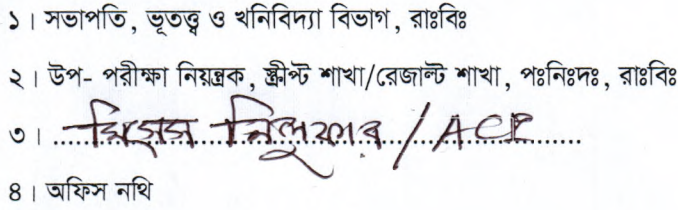 ১। সভাপতি, ভূতত্ত্ব ও খনিবিদ্যা বিভাগ, রাঃবিঃ
২। উপ- পরীক্ষা নিয়ন্ত্রক, স্ক্রীপ্ট শাখা/রেজাল্ট শাখা, পঃনিঃদঃ, রাঃবিঃ
৩। মিসেস নিলুফার / ACE
৪। অফিস নথি